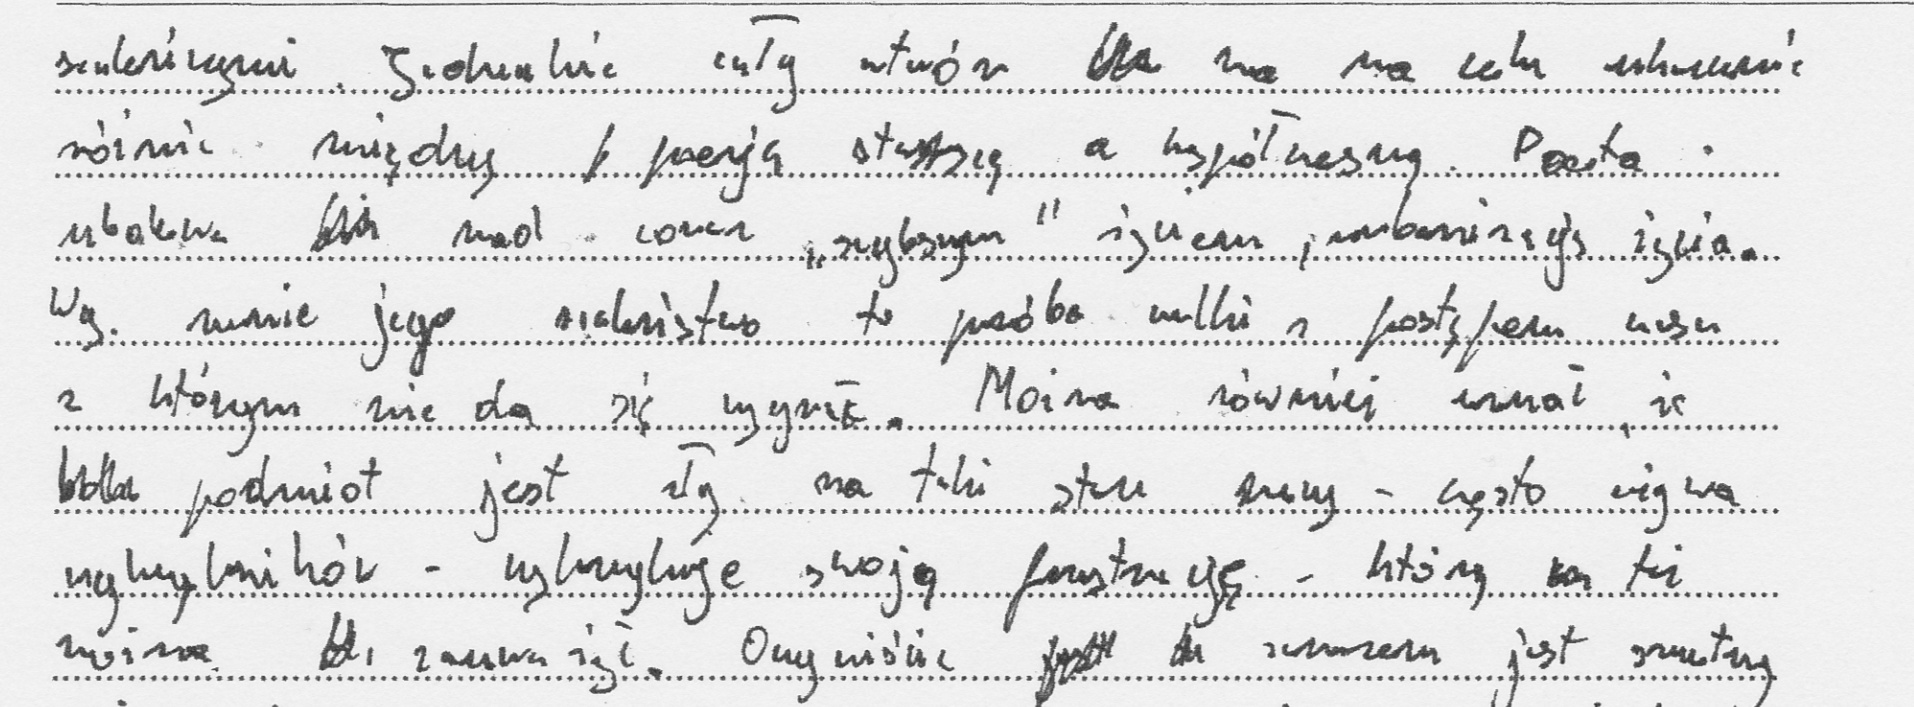 szaleńczymi. Jednakże cały utwór ma na celu ukazanie
różnic między poezją starszą a współczesną. Poeta
ubolewa nad coraz „szybszym" życiem, urbanizacją życia.
Wg. mnie jego szaleństwo to próba walki z postępem czasu
z którym nie da się wygrać. Można również uznać, że
podmiot jest zły na taki stan rzeczy - często używa
wykrzykników - wykrzykuje swoją frustrację - którą też
można zauważyć. Oczywiście zarazem jest smutny